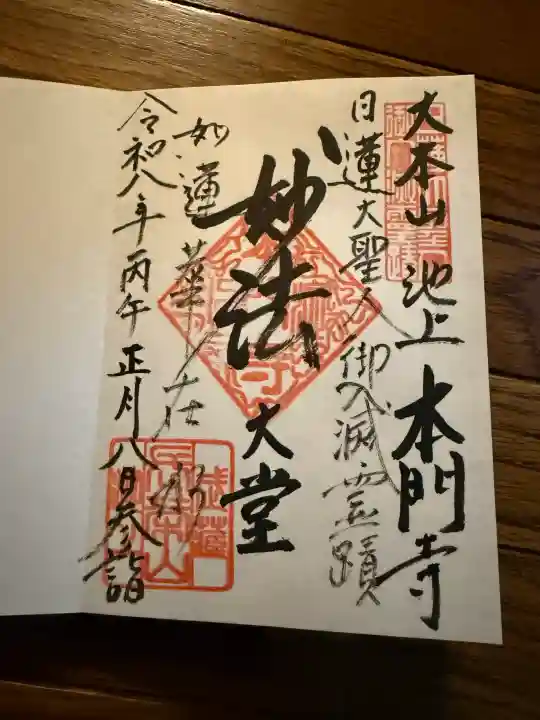 大本山 池上 本門寺
日蓮大聖人御入滅霊蹟
妙法
大堂
如蓮華在水
令和八年丙午正月八日参詣